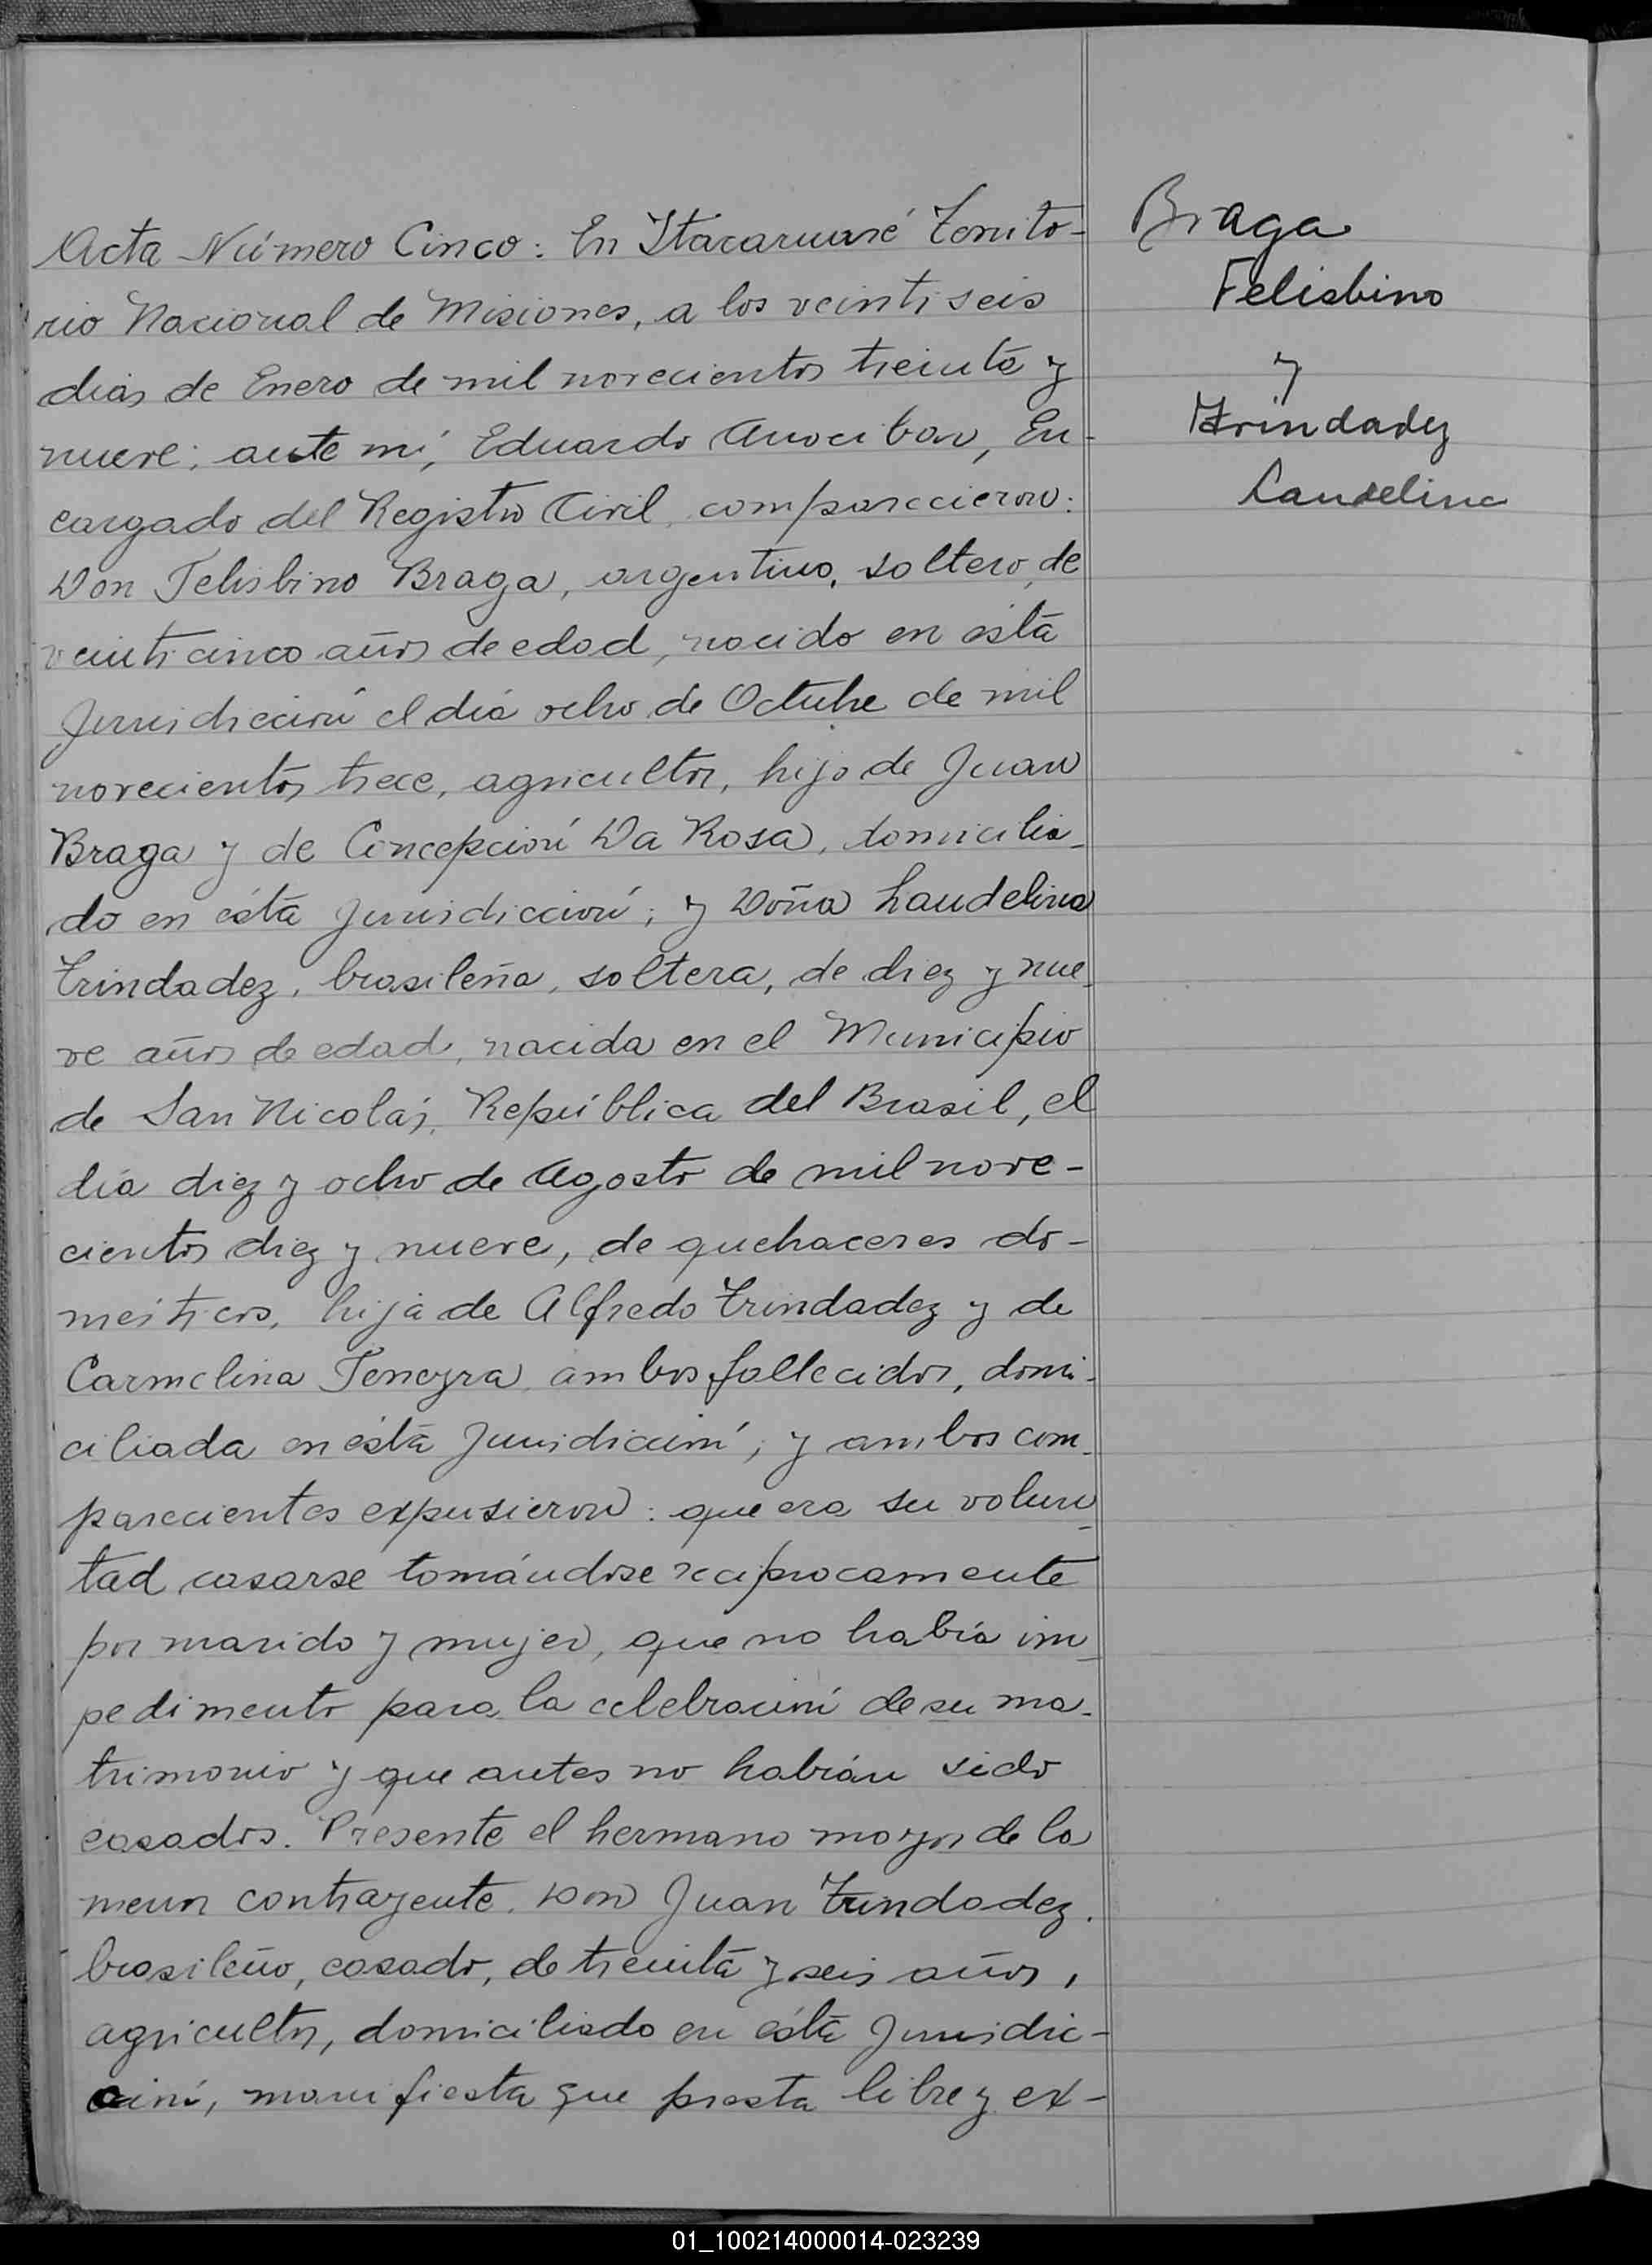 Acta Número Cinco: En Itacaruaré Territo-
rio Nacional de Misiones, a los veintiseis
dias de Enero de mil novecientos treinta y
nueve; ante mi, Eduardo Arocibar, En-
cargado del Registro Civil, comparecieron:
Don Felisbino Braga, argentino, soltero, de
veinticinco años de edad, nacido en ésta
Jurisdicción el día ocho de Octubre de mil
novecientos trece, agricultor, hijo de Juan
Braga y de Concepción Da Rosa, domicilia-
do en ésta Jurisdicción; y Doña Laudelina
Trindadez, brasileña, soltera, de diez y nue-
ve años de edad, nacida en el Municipio
de San Nicolás, República del Brasil, el
día diez y ocho de Agosto de mil nove-
cientos diez y nueve, de quehaceres do-
mésticos, hija de Alfredo Trindadez y de
Carmelina ambos fallecidos, domi-
ciliada en ésta Jurisdicción; y ambos com-
parecientes expusieron: que era su volun-
tad casarse tomándose reciprocamente
por marido y mujer, que no había im-
pedimento para la celebración de su ma-
trimonio y que antes no habían sido
casados. Presente el hermano mayor de la
menor contrayente, Don Juan Trindadez,
brasileño, casado, de treinta y seis años,
agricultor, domiciliado en ésta Jurisdic-
ción, manifiesta que presta libre y ex-
Braga
Felisbino
y
Trindadez
Laudelina
01_100214000014-023239